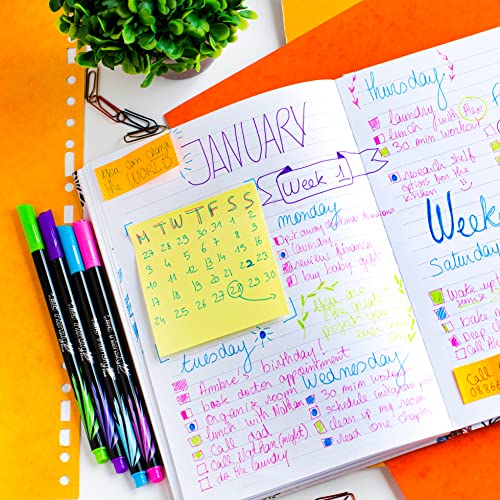 You can change
the WORLD
JANUARY
Week 1
M T W T F S S
27 28 29 30 31 1 2
3 4 5 6 7 8 9
10 11 12 13 14 15 16
17 18 19 20 21 22 23
24 25 26 27 28 29 30
monday
laundry
review finances
buy baby gift
tuesday
Ambre's birthday!
book doctor appointment
organize room
lunch with Nathan
call dad
call Nathan (night)
do the laundry
Wednesday
30 min workout
schedule instagram post
clean up my room
read one chapter
thursday
laundry
lunch (with Alex
30 min workout
research shelf
options for the
kitchen !!
Week
Saturday
wake up
bake
Deep
Call